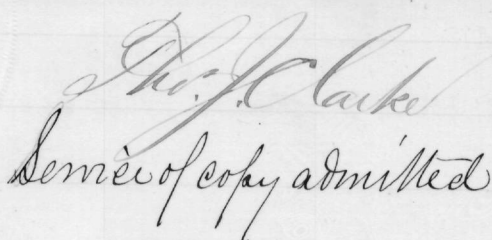 Tho. J. Clarke
Service of copy admitted